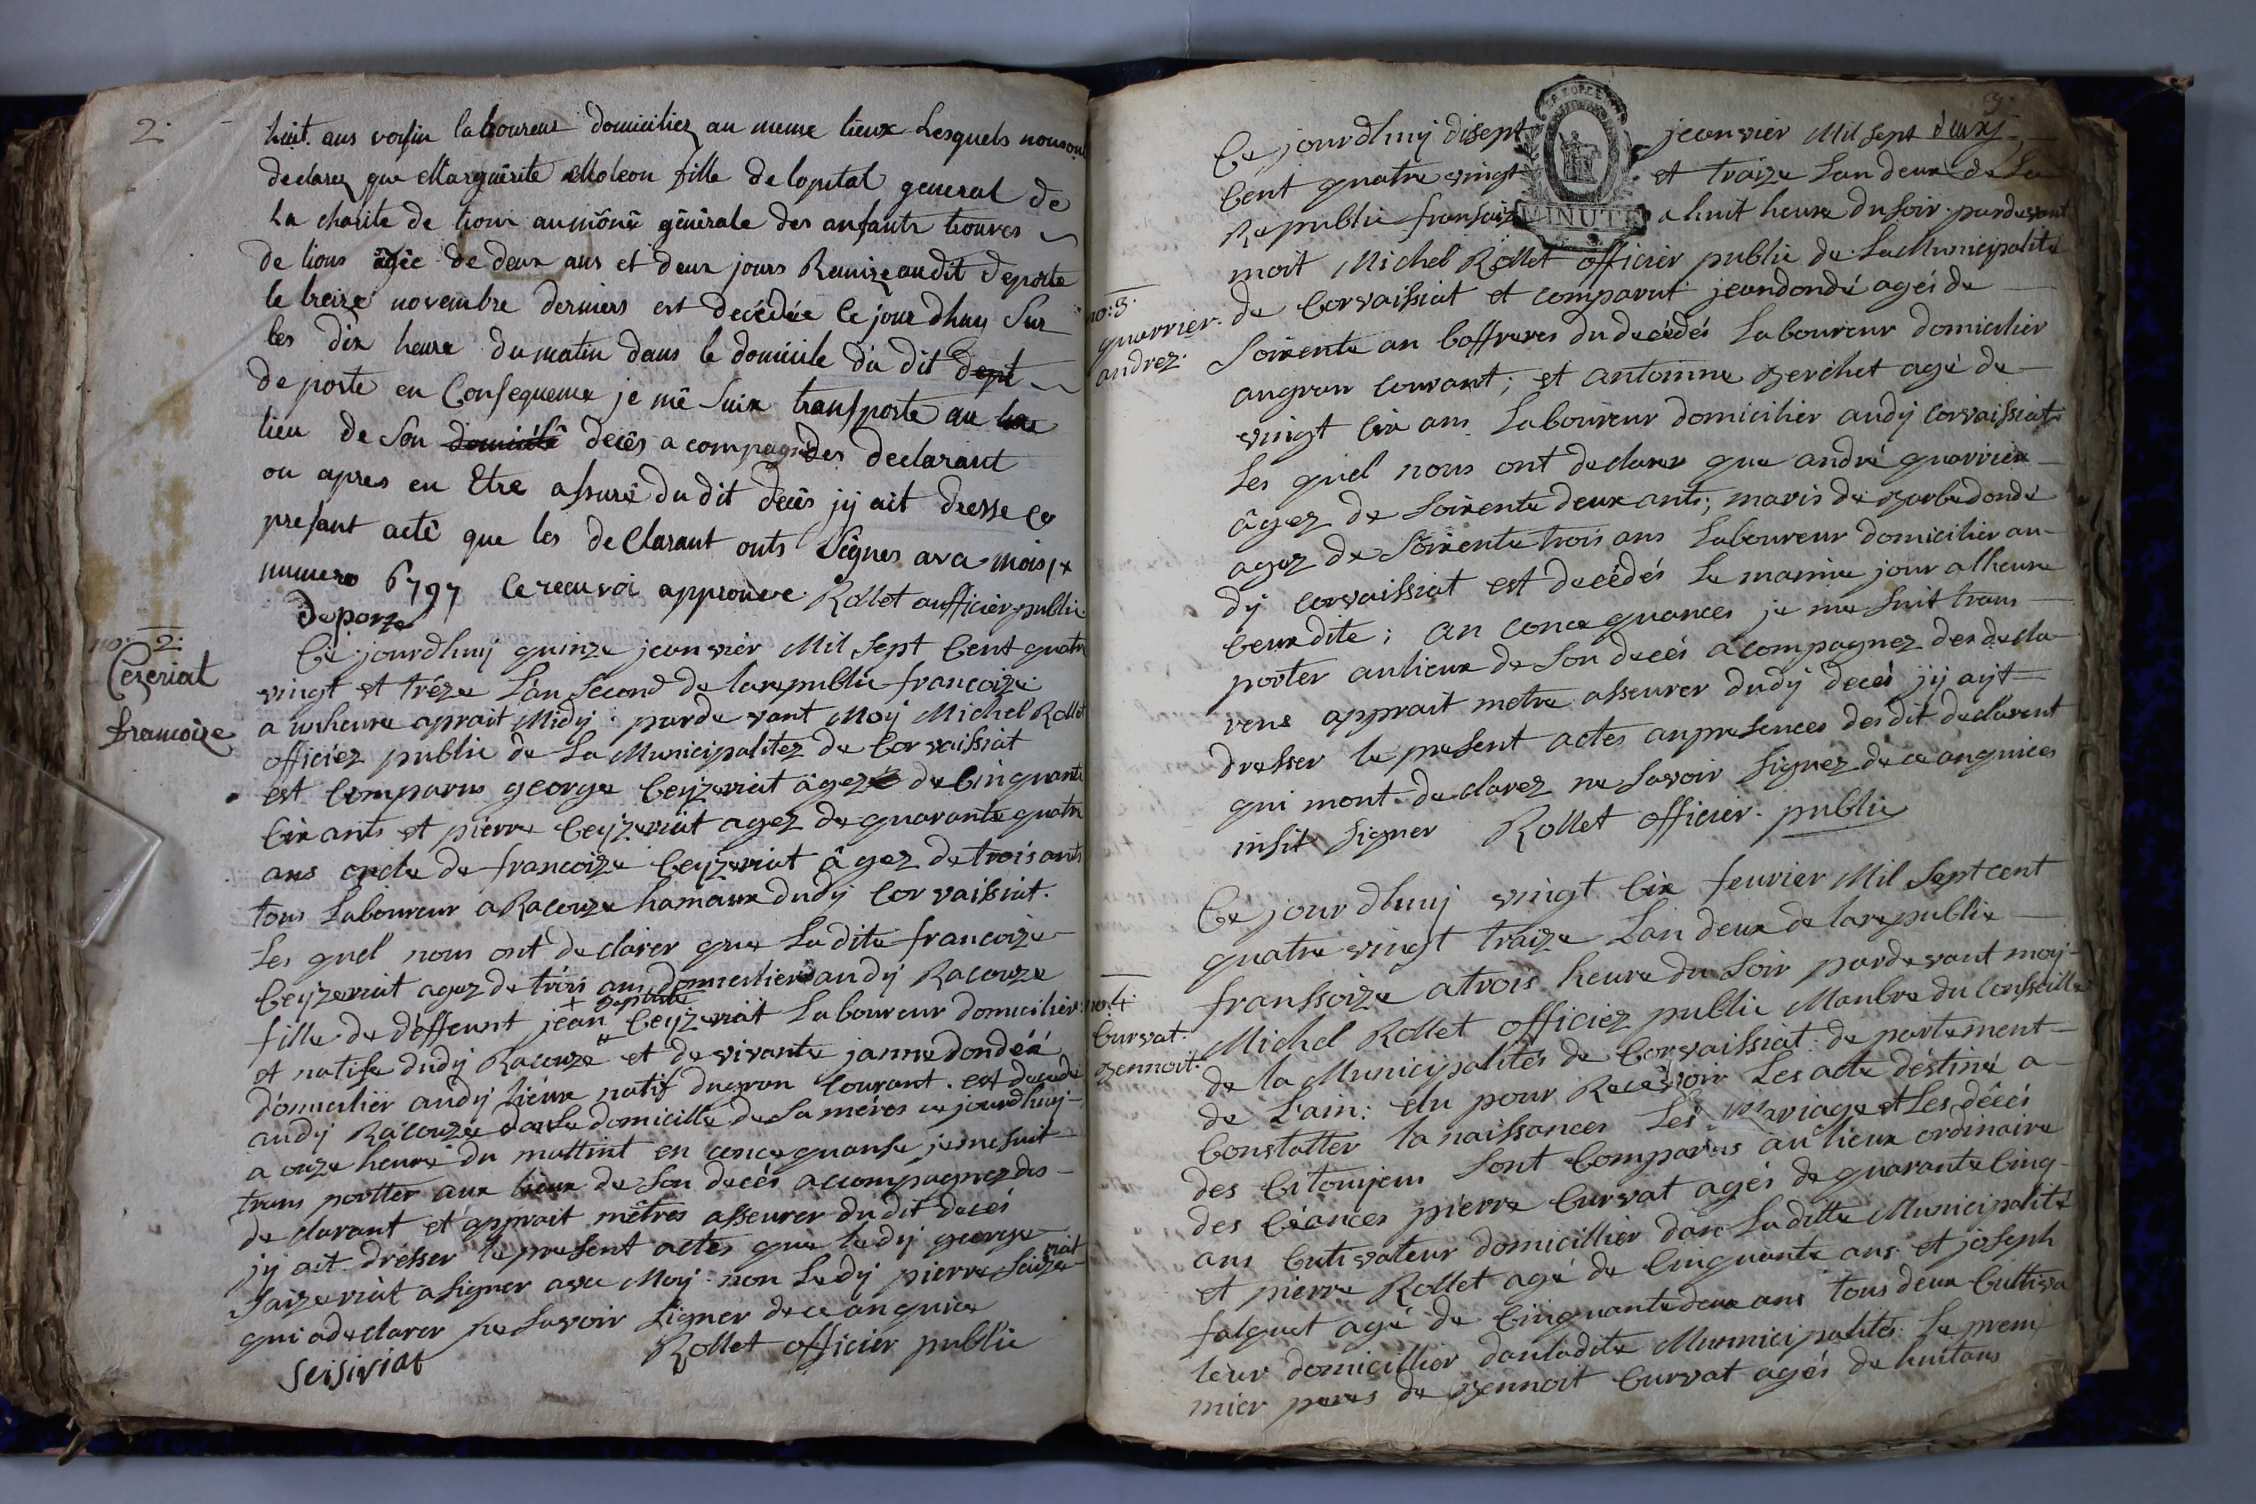 2.
huit ans voisin laboureur domiciliez au meme lieux Lesquels nous ont
declarez que Marguerite Moleon fille de lopital general de
La charite de lion aumône génerale des anfants trouves
de lions âgée de deux ans et deux jours Remize audit deporte
le treize novembre derniers est decédée ce jour dhuy Sur
les dix heure du matin dans le domicile du dit dept
deporte en Consequence je me suix transporte au
lieu de son domicile decès acompagné des declarant
ou apres en Etre assuré du dit decès jy ait dresse ce
presant acte que les declarant onts Signes ava mois
numero 6797 ce renvoi approuve Rollet aufficier public
deporte
no: 2:
Cezeriat
francoize
Ce jourdhuij quinze jeanvier Mil sept Cent quatre
vingt et tréze Lan second de larepublic francoize
a urheure aprait Midy pardevant Moy Michel Rollet
officiez public de La Municipalitez de Corvaissiat
est Comparus george Ceyzeriat âgez de Cinquante
Cix ants et pierre Ceyzeriat agez de quarante quatre
ans oncle de francoize Ceyzeriat âgez de trois ants
tous Laboureur a Racouze hamaux dudy Corvaissiat.
Les quel nous ont declarer que Ladite francoize
Ceyzeriat agez de trois ans domicilier audy Racouze
fille de déffeunt jean + baptiste Ceyzeriat Laboureur domicilier
et natife dudy Racouze et de vivante janne dondéà
domicilier audy Liéux natif dugran Courant. est decede
audy Racouze dans Le domicille de Sa méres ce jourdhuij
a onze heure du mattint en concequanse je me suit
trans portter aux lieux de Son decés accompagnez des
declarant et apprait mêtres asseurer dudit decés
jy ait dresser le present actes que ledy george
Saizeriat a signer avec Moy non Ledy pierre Saizeriat
qui a declarer ne Savoir Signer de ce anquice
Seisiriat Rollet officier public
3.
Ce jourdhuij disept jeanvier Mil sept
Cent quatre vingt et traize Lan deux de La
Republic fransaize a huit heure du soir pardevant
MINUTE
moit Michel Rollet officier public de La Municipalité
no: 3.
guerrier.
andrez.
de Corvaissiat et comparut jeandondé agés de
Soixente an baffreres du decédés Laboureur domicilier
augran Courant; et antoinne zerchet agé de
vingt Cix ans Laboureur domicilier audy Corvaissiat
Les quel nous ont declarer que andré guerrier
âgez de soixente deux ants; maris de barbe dondé
agez de Soixente trois ans Laboureur domicilier au
dy Corvaissiat est decédés Le maime jour alheure
Ceux dite; an concequances je me suit trans
porter aulieux de Son decés acompagnez des decla
rens apprait metre asseurer dudy decés jy ayt
dresser le present actes anpresences des dit declarent
qui mont declarez ne Savoir Signez de ce anquices
insit signer Rollet officier public
Ce jourdhuij vingt Cix feuvrier Mil Sept cent
quatre vingt traize Lan deux de larepublic
franssoize atrois heure du Soir pardevant moy
no 4
Curvat.
bennoit.
Michel Rollet officiez public Manbre du Consseille
de la Municipalités de Corvaissiat departement
de Lain: elu pour Recevoir Les acte destiné a
Constatter la naissances Les Mariage et Les décés
des Citoyens sont Comparus au lieux ordinaire
des Céances pierre Curvat agés de quarante Cinq
ans Cutivateur domicillier dan Laditte Municipalité
et pierre Rollet agé de Cinquante ans et joseph
falquet agé de Cinquante deux ans tous deux Cultiva
teur domicillier dan ladite Municipalités Le premi
mier peres de bennoit Curvat agés de huit ans